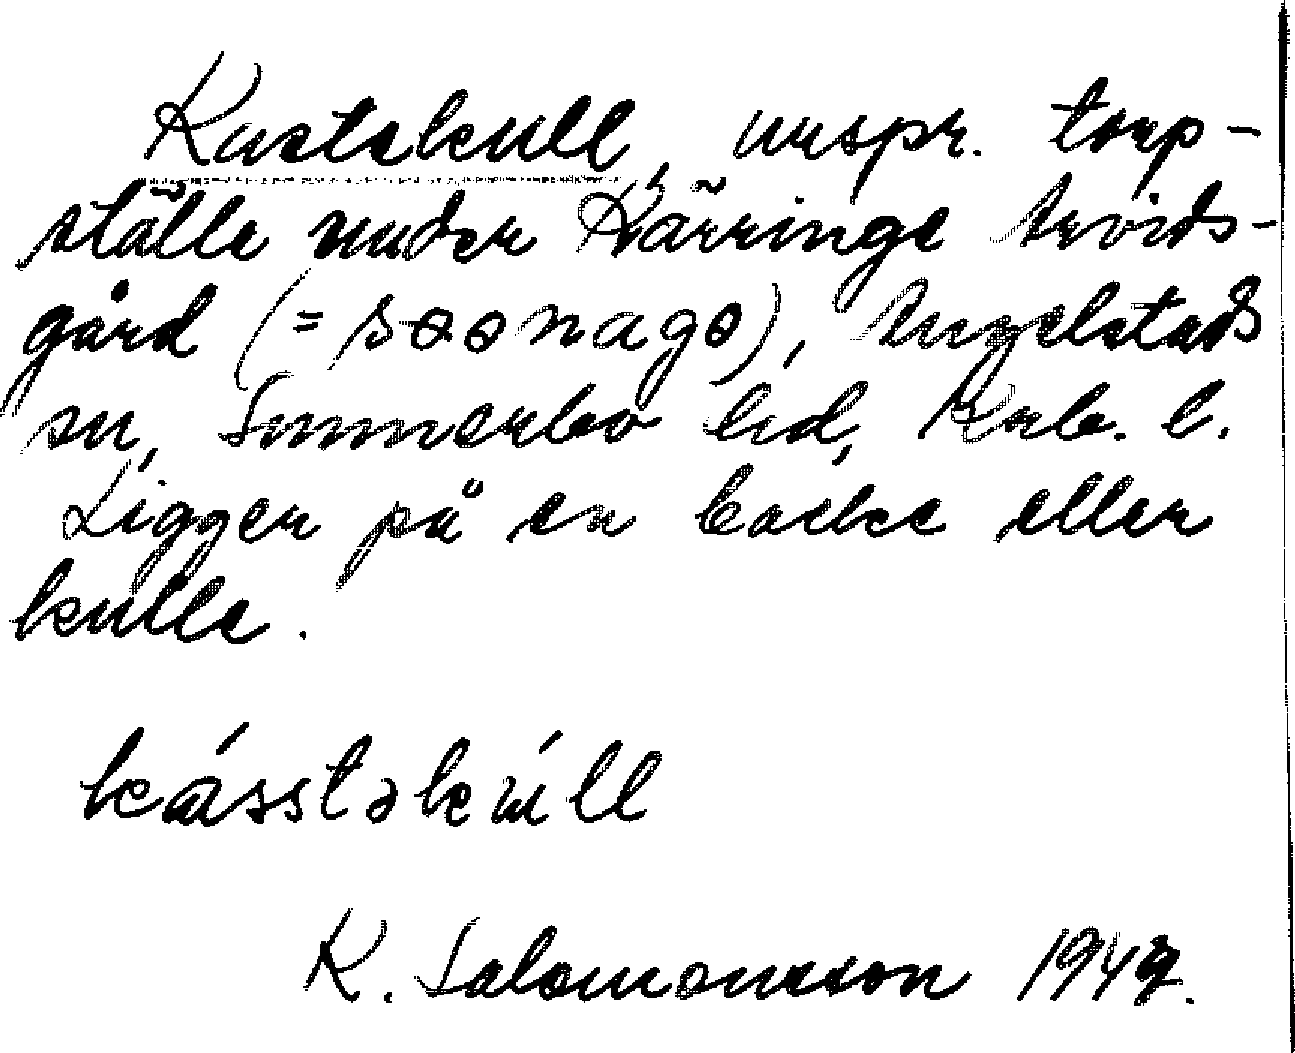 Kastekull, urspr. torp-
ställe under Kärringe
gård (= ), Angelstads
sn, Sunnerbo hd, Krb. l.
Ligger på en backe eller
kulle.
kásstəkúll
K. Salomonsson 1949.